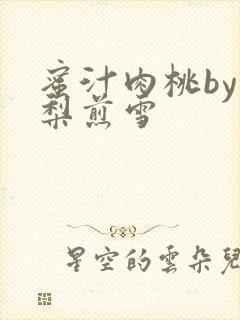 蜜汁肉桃by
梨煎雪
星空的雲朵兒